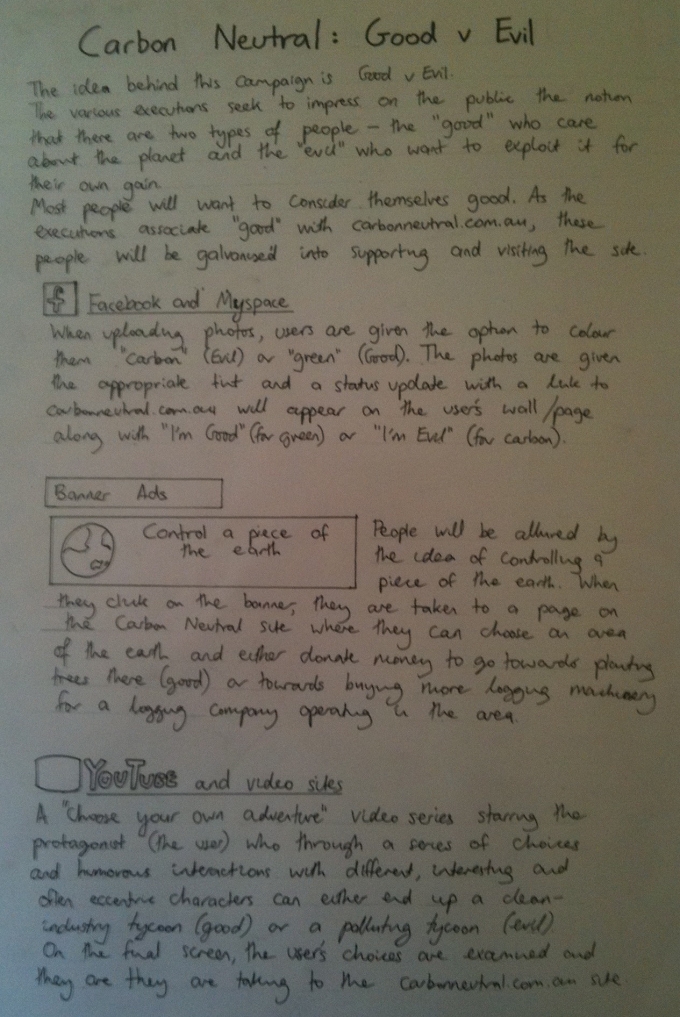 Carbon Neutral: Good v Evil
The idea behind this campaign is Good v Evil.
The various executions seek to impress on the public the notion
that there are two types of people - the "good" who care
about the planet and the "evil" who want to exploit it for
their own gain.
Most people will want to consider themselves good. As the
executions associate "good" with carbonneutral.com.au, these
people will be galvanised into supporting and visiting the site.
f Facebook and Myspace
When uploading photos, users are given the option to colour
them "carbon" (Evil) or "green" (Good). The photos are given
the appropriate tint and a status update with a link to
carbonneutral.com.au will appear on the user's wall/page
along with "I'm Good" (for green) or "I'm Evil" (for carbon).
Banner Ads
Control a piece of
the earth
People will be allured by
the idea of controlling a
piece of the earth. When
they click on the banner, they are taken to a page on
the Carbon Neutral site where they can choose an area
of the earth and either donate money to go towards planting
trees there (good) or towards buying more logging machinery
for a logging company operating in the area.
YouTube and video sites
A "Choose your own adventure" video series starring the
protagonist (the user) who through a series of choices
and humorous interactions with different, interesting and
often eccentric characters can either end up a clean-
industry tycoon (good) or a polluting tycoon (evil)
On the final screen, the user's choices are examined and
they are they are taking to the carbonneutral.com.au site